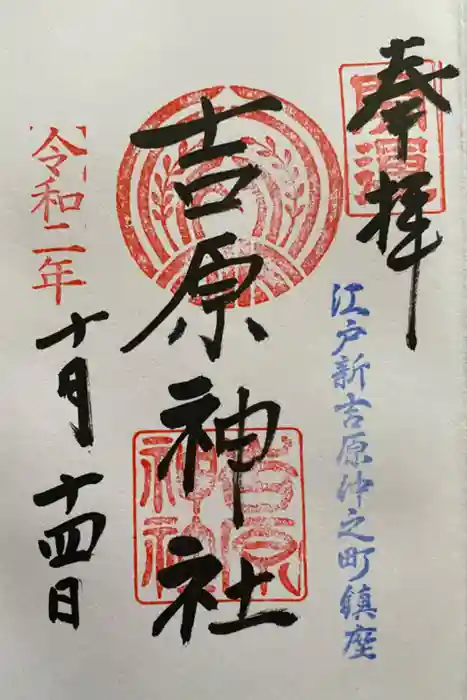 奉拝
開運
江戸新吉原仲之町鎮座
吉原神社
吉原神社
令和二年
十月十四日